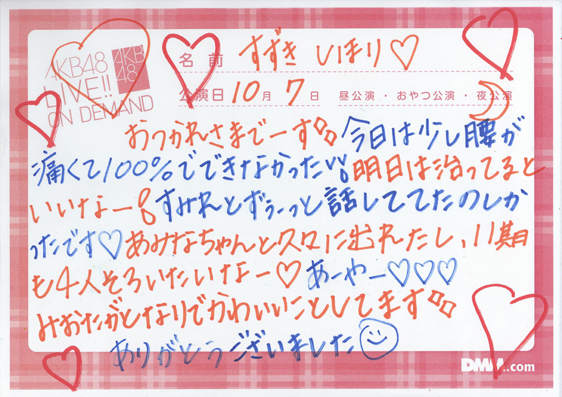 AKB48
LIVE!!
ON DEMAND
AKB
48
名前 すずき しほり♡
公演日 10月 7日 昼公演・おやつ公演・夜公演
おつかれさまでーす 今日は少し腰が
痛くて100%でできなかった!! 明日は治ってると
いいなー すみれとずぅーっと話しててたのしか
ったです♡ あみなちゃんと久々に出れたし、11期
も4人そろいたいなー♡ あーやー♡♡♡
みおたがとなりでかわいいことしてます
ありがとうございました☺
DMM.com